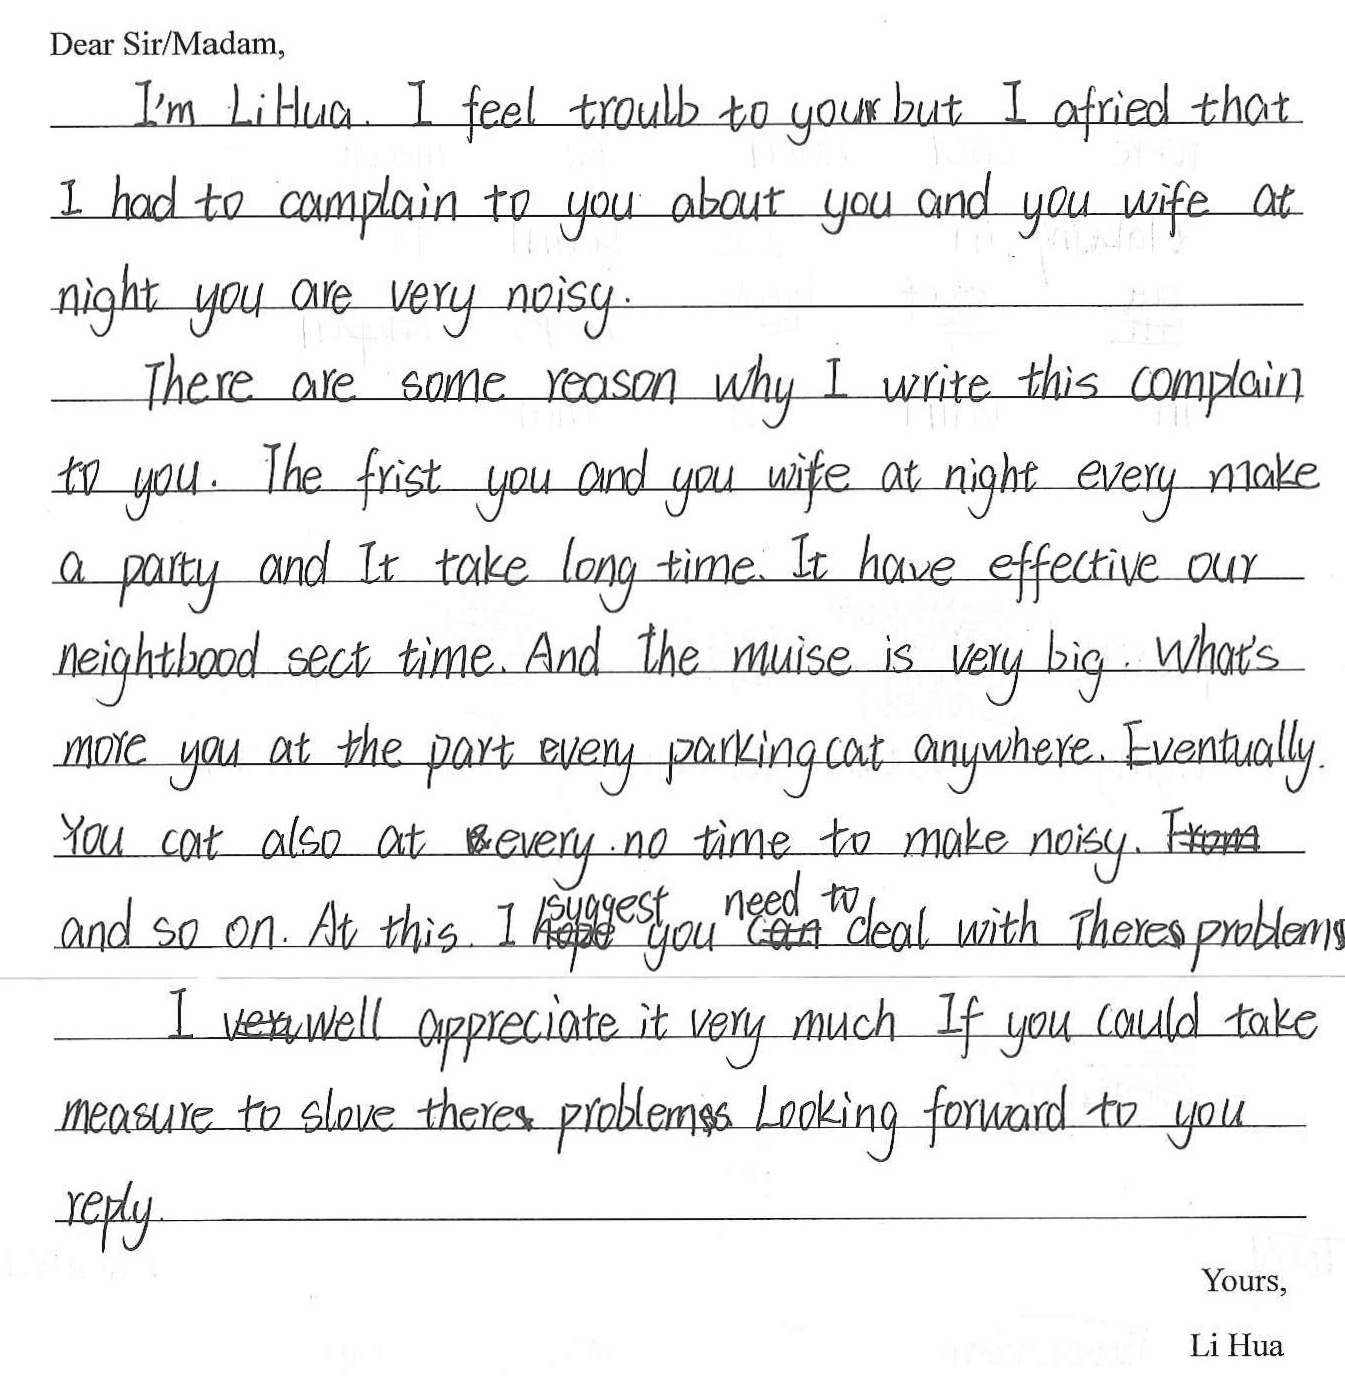 Dear Sir/Madam,
I'm LiHua. I feel troulb to your but I afried that
I had to camplain to you about you and you wife at
night you are very noisy.
There are some reason why I write this complain
to you. The frist you and you wife at night every make
a party and It take long time. It have effective our
neightbood sect time. And the muise is very big. What's
more you at the part every parking cat anywhere. Eventually.
You cat also at every no time to make noisy.
and so on. At this. I suggest you need to deal with Theres problems
I well appreciate it very much If you cauld take
measure to slove theres problems Looking forward to you
reply.
Yours,
Li Hua